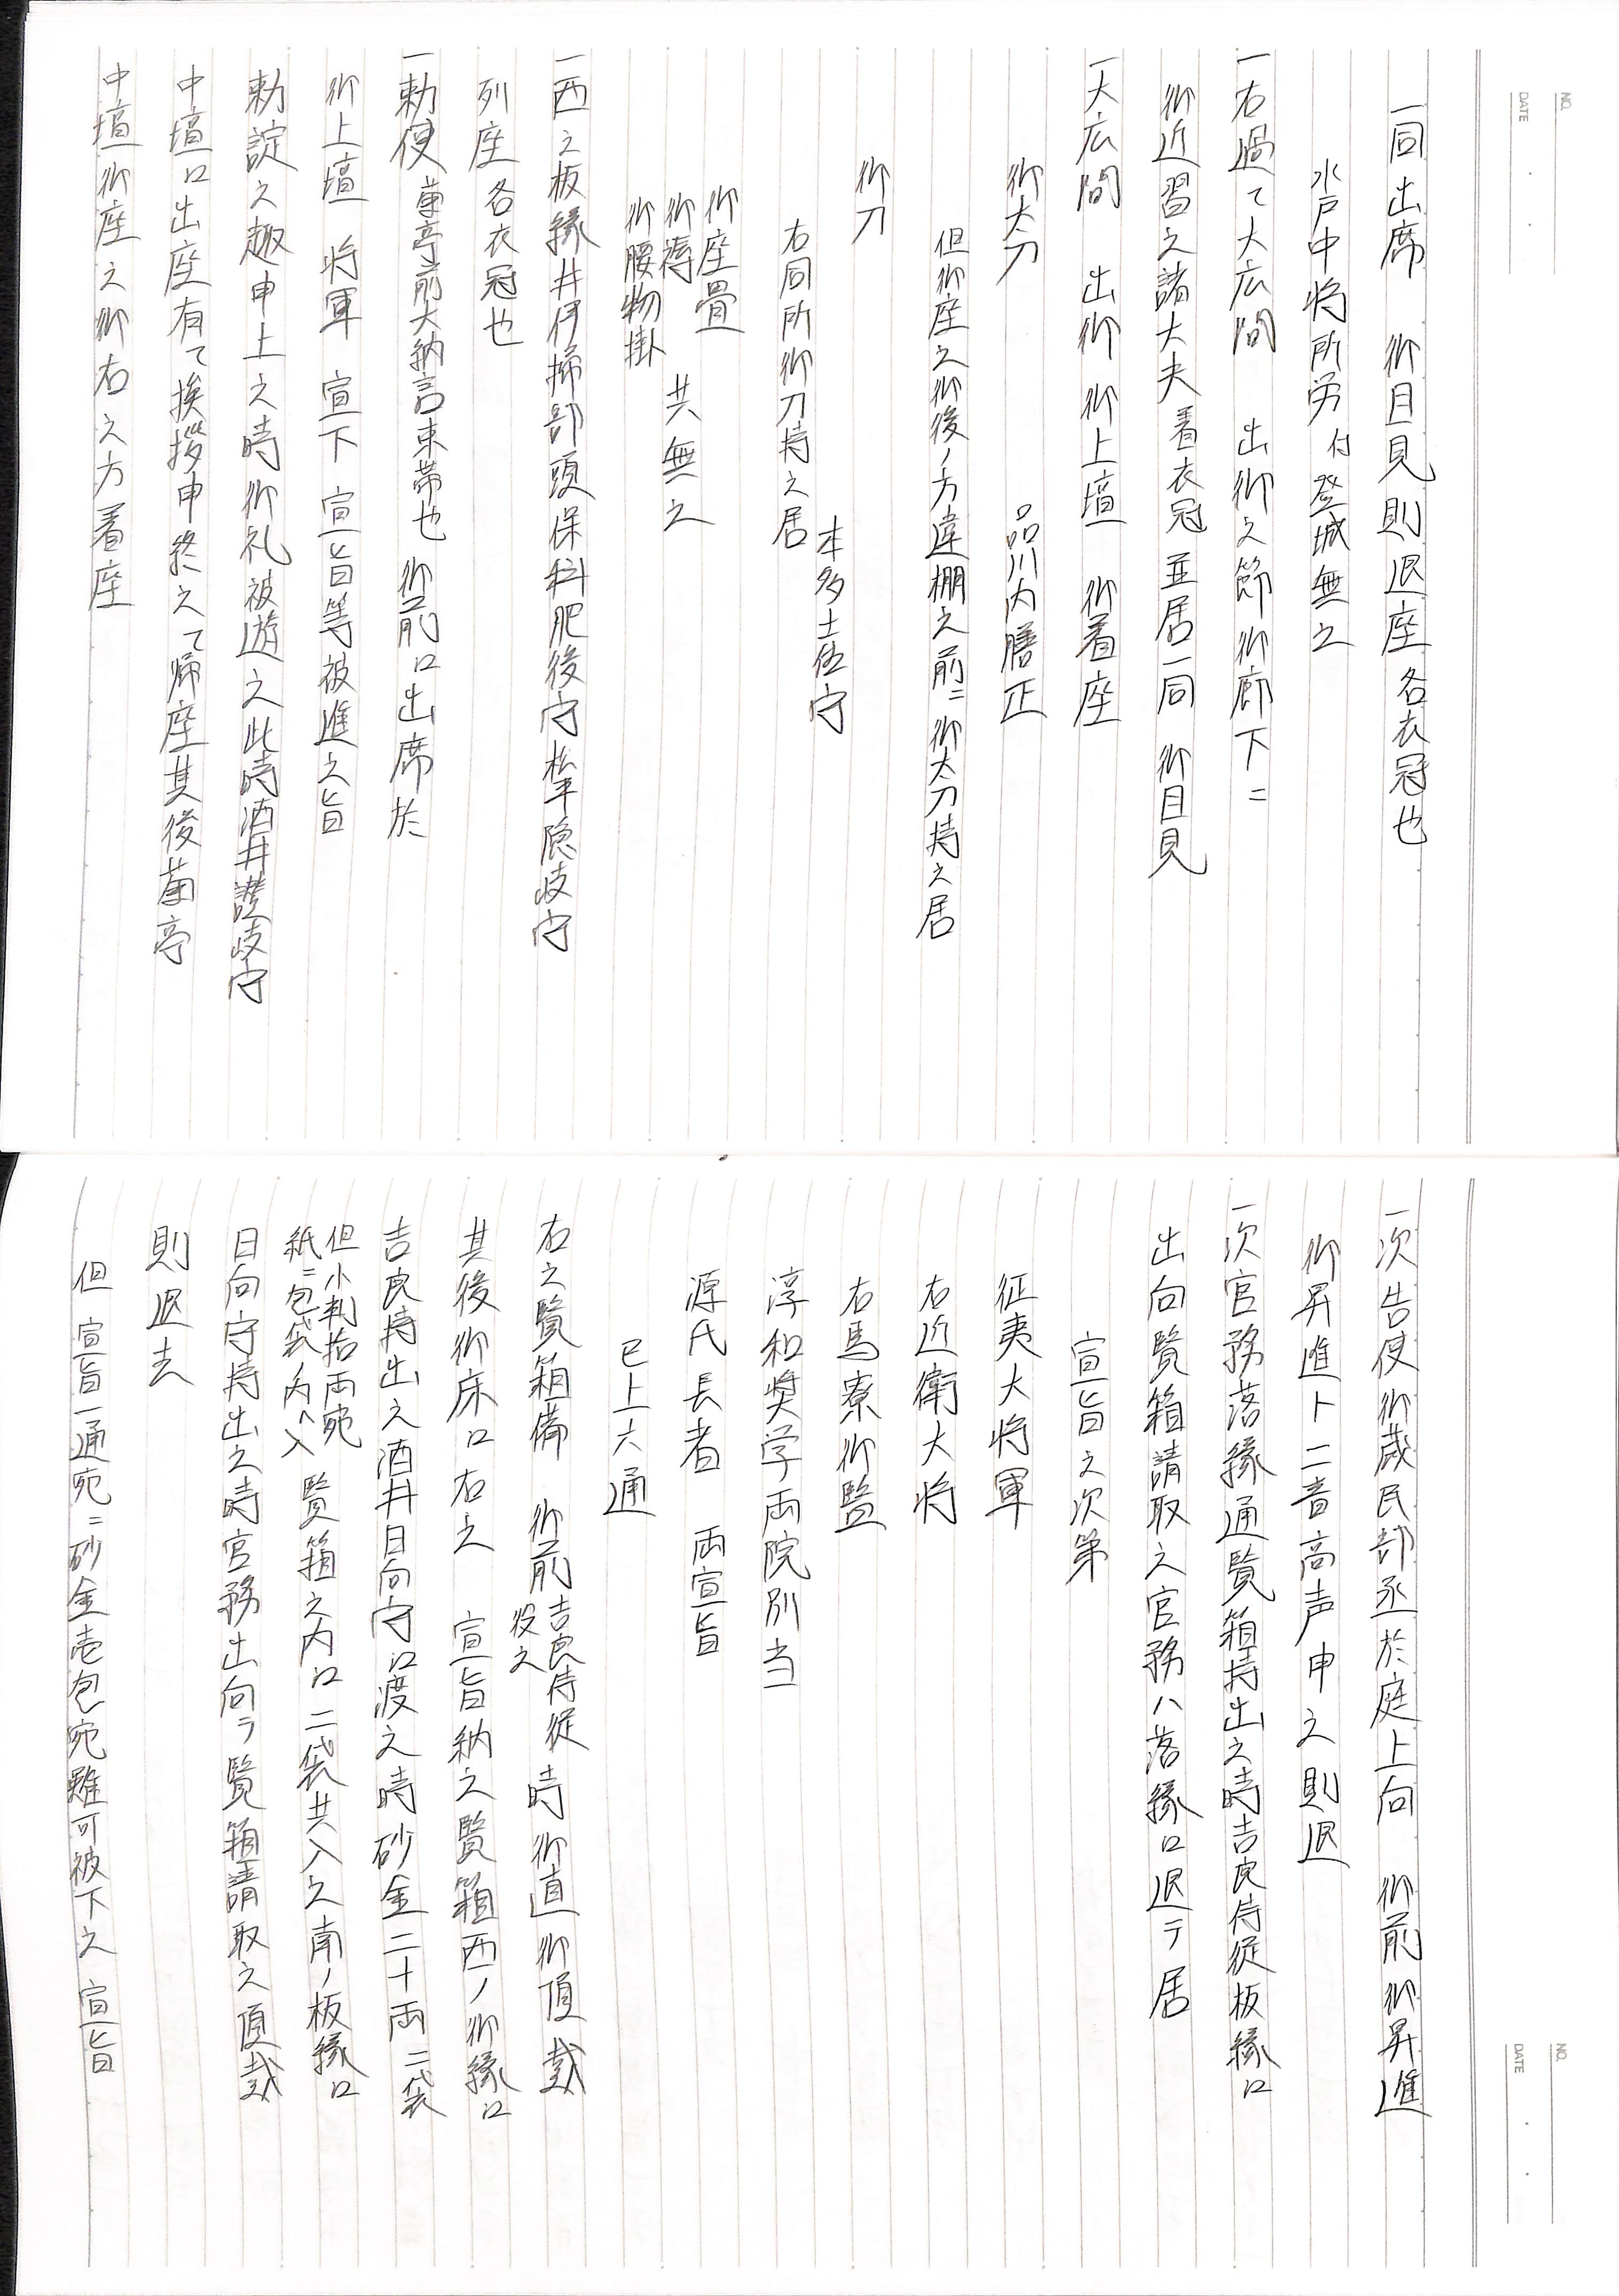 NO.
DATE
一同出席　御目見則退座各衣冠也
水戸中将所労付登城無之
一右過て大広間　出御之節御廊下ニ
御近習之諸大夫着衣冠並居一同　御目見
一大広間　出御　御上壇　御着座
御太刀　品川内膳正
但御座之御後ノ方違棚之前ニ御太刀持之居
御刀　本多土佐守
右同所御刀持之居
御座畳
御褥　共無之
御腰物掛
一西之板縁井伊掃部頭保科肥後守松平隠岐守
列座各衣冠也
一勅使菊亭前大納言束帯也　御前江出席於
御上壇　将軍　宣下　宣旨等被進之旨
勅諚之趣申上之時御礼被遊之此時酒井讃岐守
中壇江出座有て挨拶申終之て帰座其後菊亭
中壇御座之御右之方着座
NO.
DATE
一次告使御蔵民部丞於庭上向　御前御昇進
御昇進ト二音高声申之則退
一次官務落縁通覧箱持出之時吉良侍従板縁江
出向覧箱請取之官務ハ落縁江退テ居
宣旨之次第
征夷大将軍
右近衛大将
右馬寮御監
淳和奨学両院別当
源氏長者　両宣旨
已上六通
右之覧箱備　御前吉良侍従役之　時御直御頂戴
其後御床江右之　宣旨納之覧箱西ノ御縁江
吉良持出之酒井日向守江渡之時砂金二十両二袋
但小判拾両宛紙ニ包袋内へ入　覧箱之内江二袋共入之南ノ板縁江
日向守持出之時官務出向テ覧箱請取之頂戴
則退去
但　宣旨一通宛ニ砂金壱包宛雖可被下之　宣旨